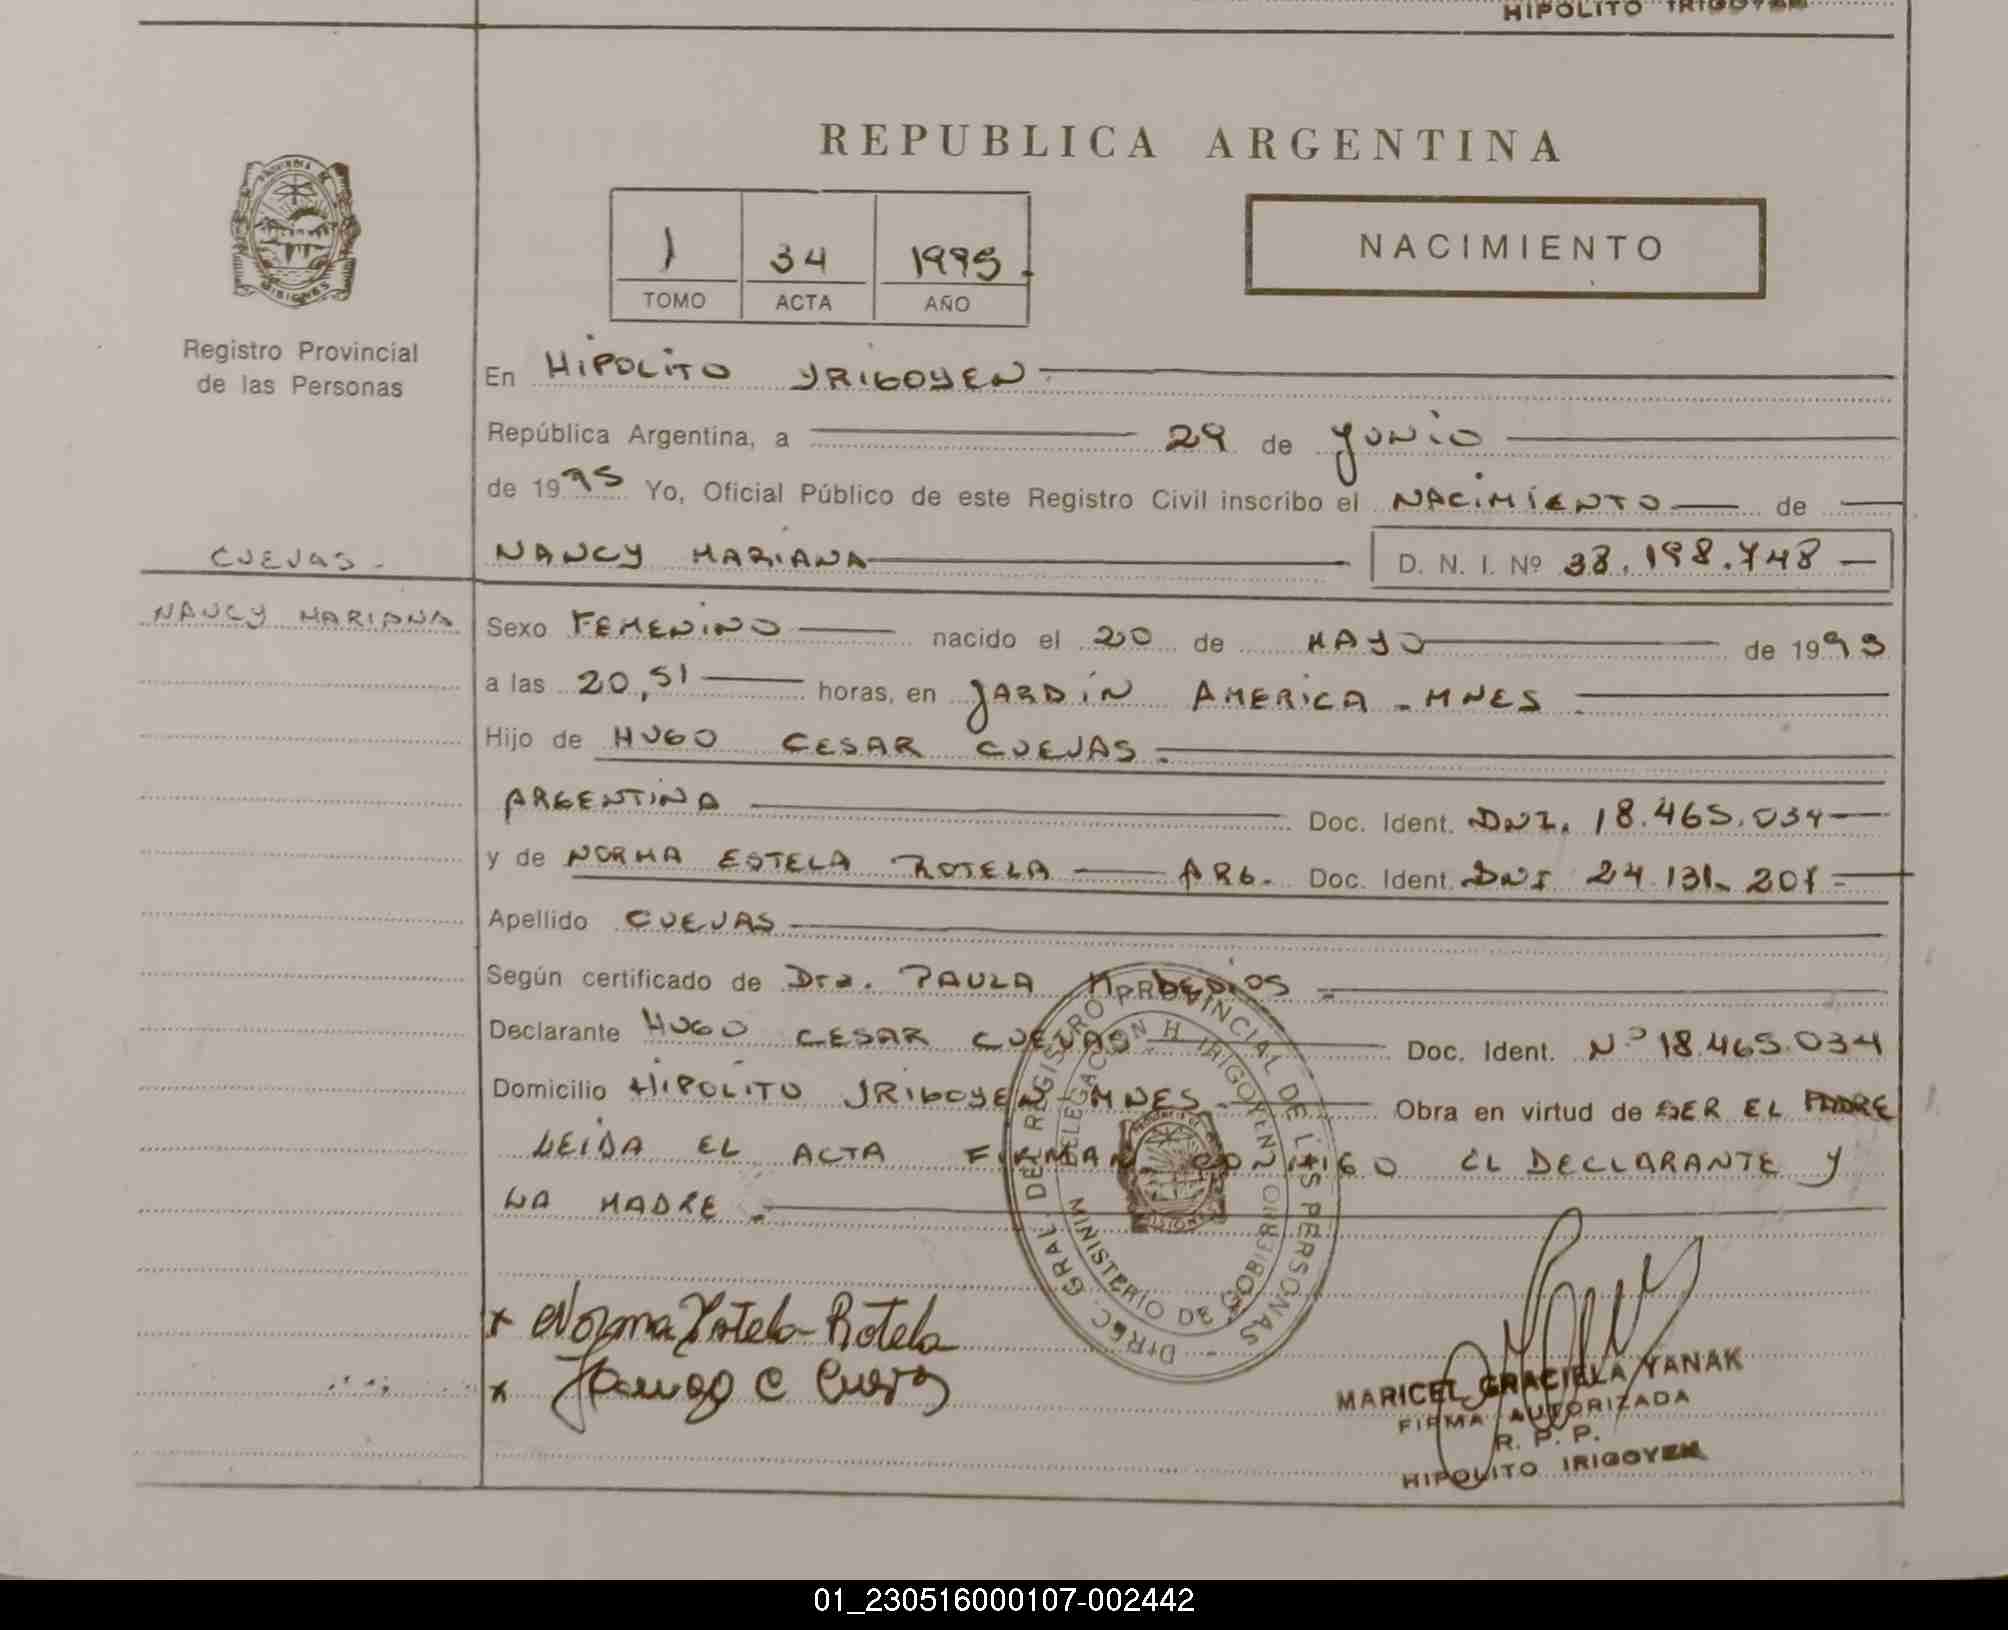 HIPOLITO IRIGOYEN
REPUBLICA ARGENTINA
PROVINCIA DE
MISIONES
Registro Provincial
de las Personas
1 34 1995
TOMO ACTA AÑO
NACIMIENTO
En HIPOLITO YRIGOYEN
República Argentina, a 29 de JUNIO
de 1995 Yo, Oficial Público de este Registro Civil inscribo el NACIMIENTO de
CUEVAS.
NANCY MARIANA D. N. I. Nº 38.198.748
NANCY MARIANA
Sexo FEMENINO nacido el 20 de MAYO de 1995
a las 20,51 horas, en JARDIN AMERICA - MNES.
Hijo de HUGO CESAR CUEVAS.
ARGENTINA Doc. Ident. DNI. 18.465.034
y de NORMA ESTELA ROTELA ARG. Doc. Ident. DNI 24.131.201
Apellido CUEVAS
Según certificado de Dra. PAULA
Declarante HUGO CESAR CUEVAS Doc. Ident. Nº 18.465.034
Domicilio HIPOLITO YRIGOYEN - MNES Obra en virtud de SER EL PADRE
LEIDA EL ACTA FIRMAN CONMIGO EL DECLARANTE Y
LA MADRE.
DIREC. GRAL. DEL REGISTRO PROVINCIAL DE LAS PERSONAS
DELEGACION H. IRIGOYEN
MINISTERIO DE GOBIERNO
x Norma Estela Rotela
x Hugo C Cuevas
MARICEL GRACIELA YANAK
FIRMA AUTORIZADA
R. P. P.
HIPOLITO IRIGOYEN
01_230516000107-002442